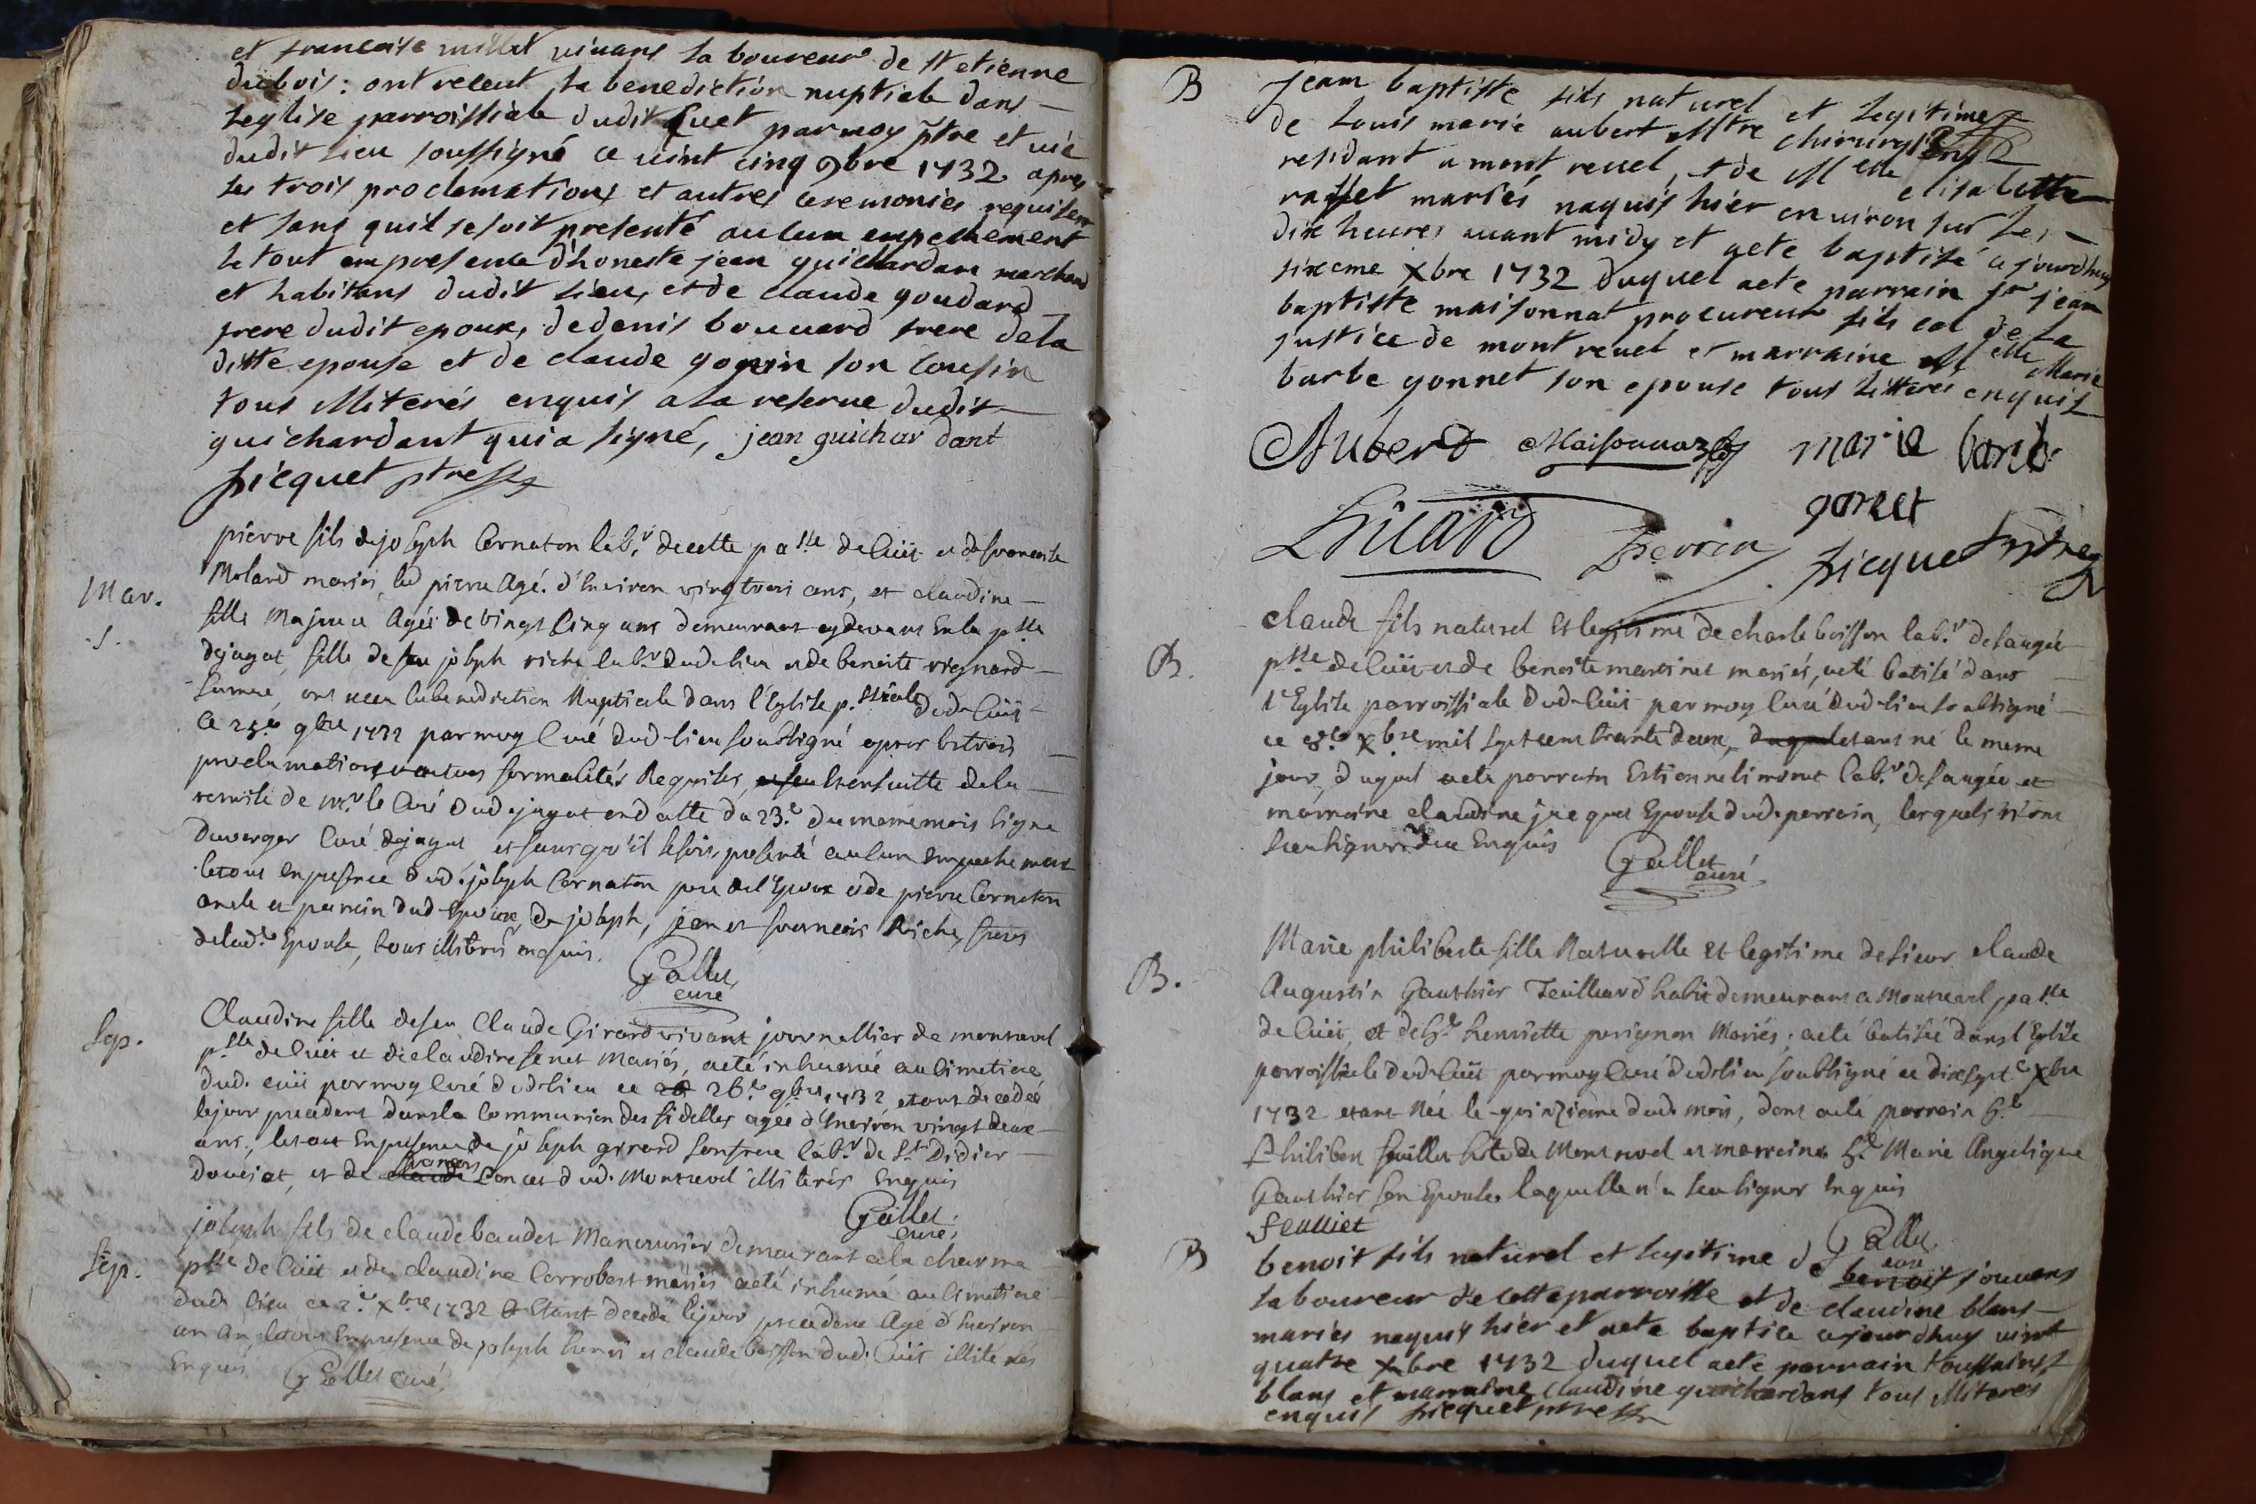 et francoise millet vivans laboureur de st etienne
dubois: ont receut la benediction nuptiale dans
leglise parroissiale dudit Cuet par moy ptre et vic
dudit lieu soussigné ce vint cinq 9bre 1732 apres
les trois proclamations et autres ceremonies requises
et sans quil se soit presenté aucun empechement
le tout en presence d'honeste jean guichardan marchand
et habitans dudit lieu, et de claude goudard
frere dudit epoux, de denis bouuard frere de la
ditte epouse et de claude gonin son cousin
tous illiterés enquis a la reserve dudit
guichardant qui a signé, jean guichardant
picquet ptre
Mar.
s.
pierre fils de joseph Cornaton lab.r de cette psse de Cüet et de francoise
Moland mariés, led pierre Agé d'Environ vingt trois ans, et claudine
fille Majeure Agée de vingt Cinq ans demeurant cydevant En la psse
dejayat fille de feu joseph riche lab.r dud lieu et de benoite vignard
femme, ont receu la benediction Nuptiale dans l'Eglise p.ssiale dud Cüet
Ce 25e 9bre 1732 par moy Curé dud lieu soussigné apres les trois
proclamations et autres formalités Requises, Ensuitte de la
remise de mr. le Curé dud jayat en datte du 23.e du meme mois signe
Duverger Curé dejayat et sans qu'il se soit presenté aucun Empechement
le tout En presence dud. joseph Cornaton pere de l'Epoux et de pierre Cornaton
oncle et parrain dud Epoux, de joseph, jean et francois Riche, freres
de lad.e Epouse, tous illiterés enquis.
Gallet
curé
Sep.
Claudine fille de feu Claude Girard vivant journallier de montrevel
psse de Cüet et de claudine Mariés, a eté inhumée au cimetiere
dud. cüet par moy Curé dud lieu ce 26.e 9bre 1732 etant decedée
le jour precedent dans la Communion des fidelles agée d'Environ vingt deux
ans, le tout En presence de joseph girard son frere lab.r de St. Didier
doussiat, et de francois Poncet dud. Montrevel illiterés Enquis
Gallet
curé
Sep.
joseph fils de claude baudet Manouvrier demeurant a la charme
psse de Cüet et de claudine Corrobert mariés a eté inhumé au Cimetiere
dud lieu ce 2.e Xbre 1732 Etant decedé le jour precedent Agé d'Environ
un an le tout En presence de joseph et claude boisson dud. Cüet illiterés
Enquis. Gallet curé
B
jean baptiste fils naturel et legitime
de Louis marie aubert Mtre chirurgien
residant a mont revel, & de Melle elisabette
raffet mariés naquis hier environ sur les
dix heures avant midy et a ete baptisé ajourdhuy
sixeme Xbre 1732 duquel a ete parrain sr jean
baptiste maisonnat procureur fiscal de la
justice de mont revel et marraine Melle Marie
barbe gonnet son epouse tous litteres enquis
Aubert Maisonnat marie barbe
gonnet
Perrin picquet ptre
B.
claude fils naturel Et legitime de charle boisson lab.r de sangée
psse de Cüet et de benoite martinet mariés, a eté batisé dans
l'Eglise parroissiale dud Cüet par moy Curé dud lieu soussigné
ce 8.e Xbre mil sept cent trente deux, etant né le meme
jour, duquel a ete parrain Estienne limonet lab.r de sangée et
marraine claudine jacquet Epouse dud. parrain, lesquels n'ont
sceu signer Enquis
Gallet
curé
B.
Marie philiberte fille Naturelle Et legitime de sieur claude
Augustin Gauthier habit demeurant a Montrevel psse
de Cüet, et de de henriette perignon Mariés; a eté batisée dans l'Eglise
parroissiale dud Cüet par moy Curé dud lieu soussigné ce dix sept Xbre
1732 etant Née le quinzieme dud. mois, dont a eté parrain Sr.
Philibert feuillet hote de Montrevel et marraine de Marie Angelique
Gauthier son Epouse laquelle n'a sceu signer Enquis
feulliet
Gallet
curé
B
benoit fils naturel et legitime de benoit jouvens
laboureur de cette parroisse et de claudine blans
mariés naquis hier et a ete baptisé ajourdhuy vint
quatre Xbre 1732 duquel a ete parrain toussains
blans et marraine claudine guichardans tous illiteres
enquis picquet ptre